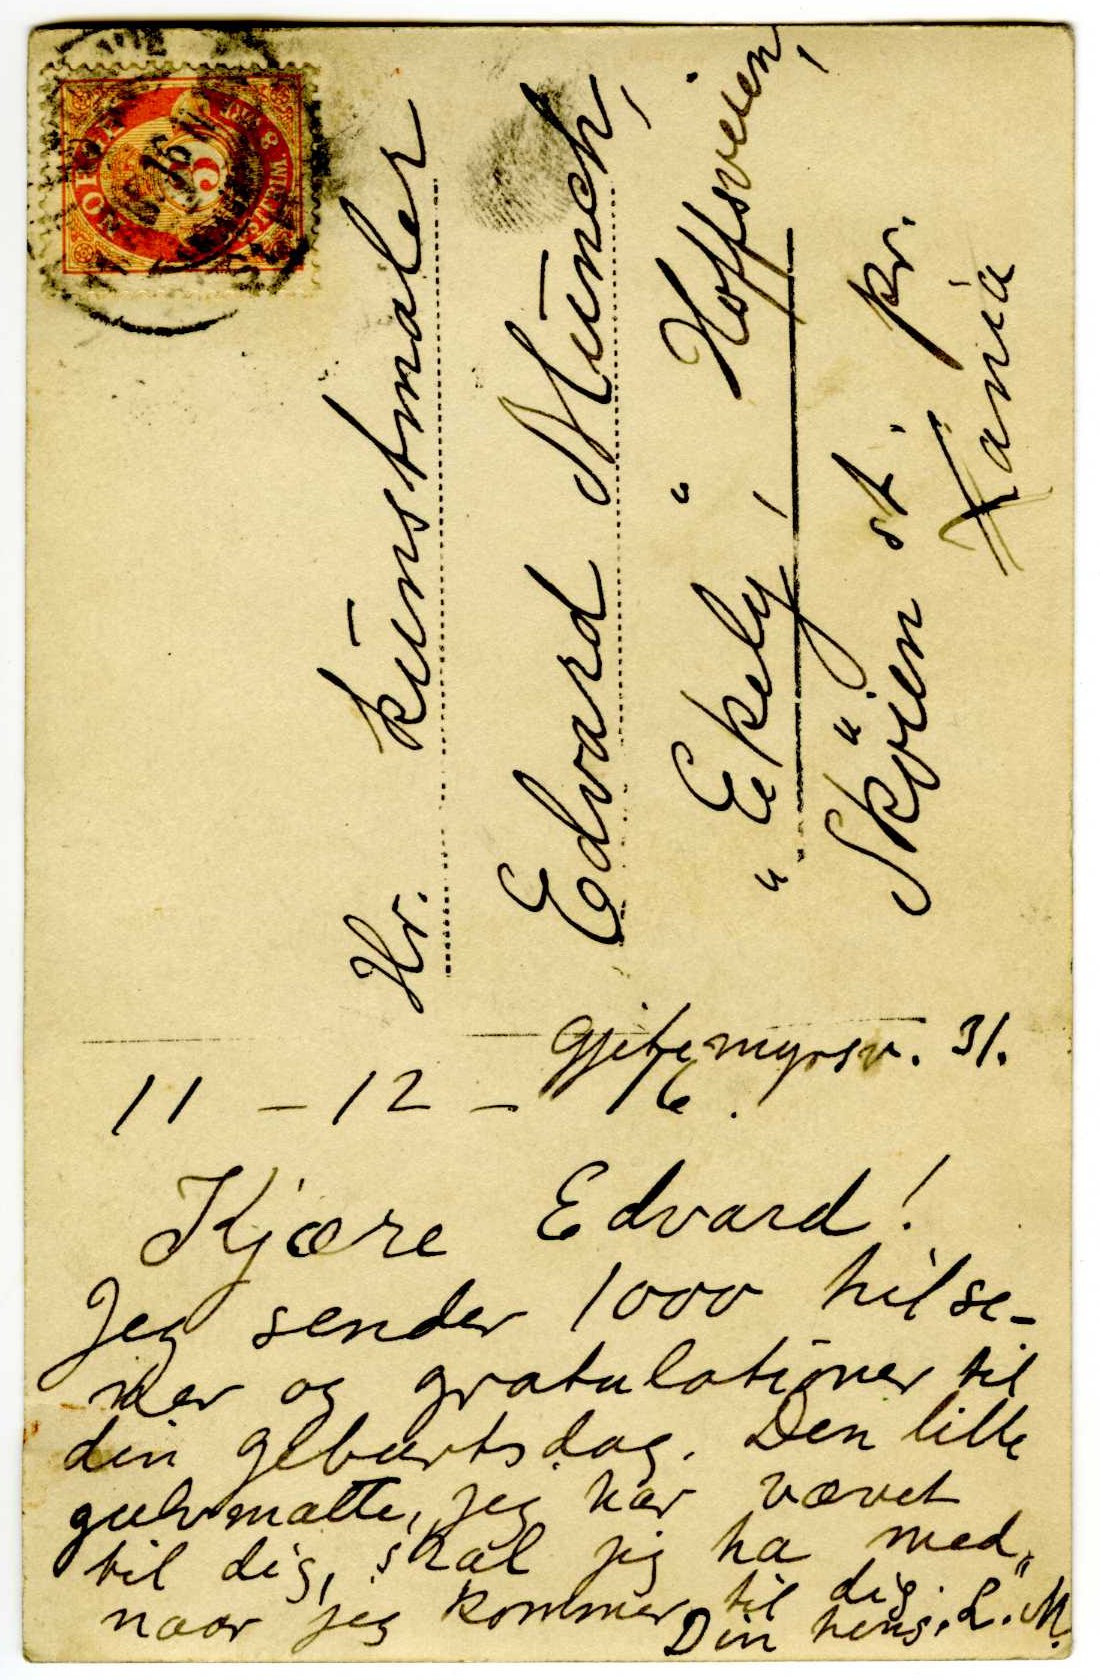 NORGE
8
Hr. Kunstmaler
Edvard Munch,
"Ekely", Hoffsveien,
Skøien st. pr.
Xania
Gjitemyrsv. 31.
11 - 12 - 16.
Kjære Edvard!
Jeg sender 1000 hilse-
ner og gratulationer til
din geburtsdag. Den lille
gulvmatte, jeg har vævet
til dig, skal jeg ha med,
naar jeg kommer til dig.
Din heng. L. M.